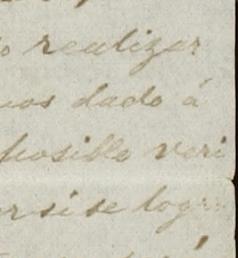 o realizar
mos dado á
posible veri
or si se logr